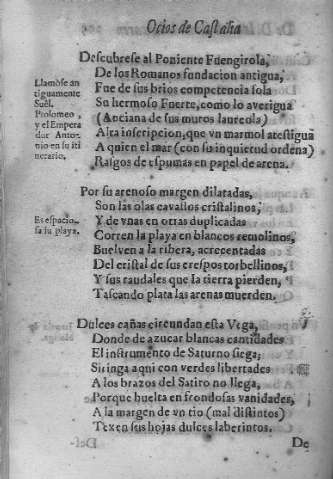 Ocios de Castalia
Descubrese al Poniente Fuengirola,
De los Romanos fundacion antigua,
Fue de sus brios competencia sola
Su hermoso Fuerte, como lo averigua
(Anciana de sus muros laureola)
Alta inscripcion, que vn marmol atestigua
A quien el mar (con su inquietud ordena)
Rasgos de espumas en papel de arena.
Llamòse an
tiguamente
Suêl.
Ptolomeo,
y el Empera
dor Anto-
nio en su iti
nerario.
Por su arenoso margen dilatadas,
Son las olas cavallos cristalinos,
Y de vnas en otras duplicadas
Corren la playa en blancos remolinos,
Buelven a la ribera, acrecentadas
Del cristal de sus crespos torbellinos,
Y sus raudales que la tierra pierden,
Tascando plata las arenas muerden.
Es espacio-
sa su playa.
Dulces cañas circundan esta Vega,
Donde de azucar blancas cantidades
El instrumento de Saturno siega;
Siringa aqui con verdes libertades
A los brazos del Satiro no llega,
Porque huelta en frondosas vanidades,
A la margen de vn rio (mal distintos)
Texen sus hojas dulces laberintos.
De